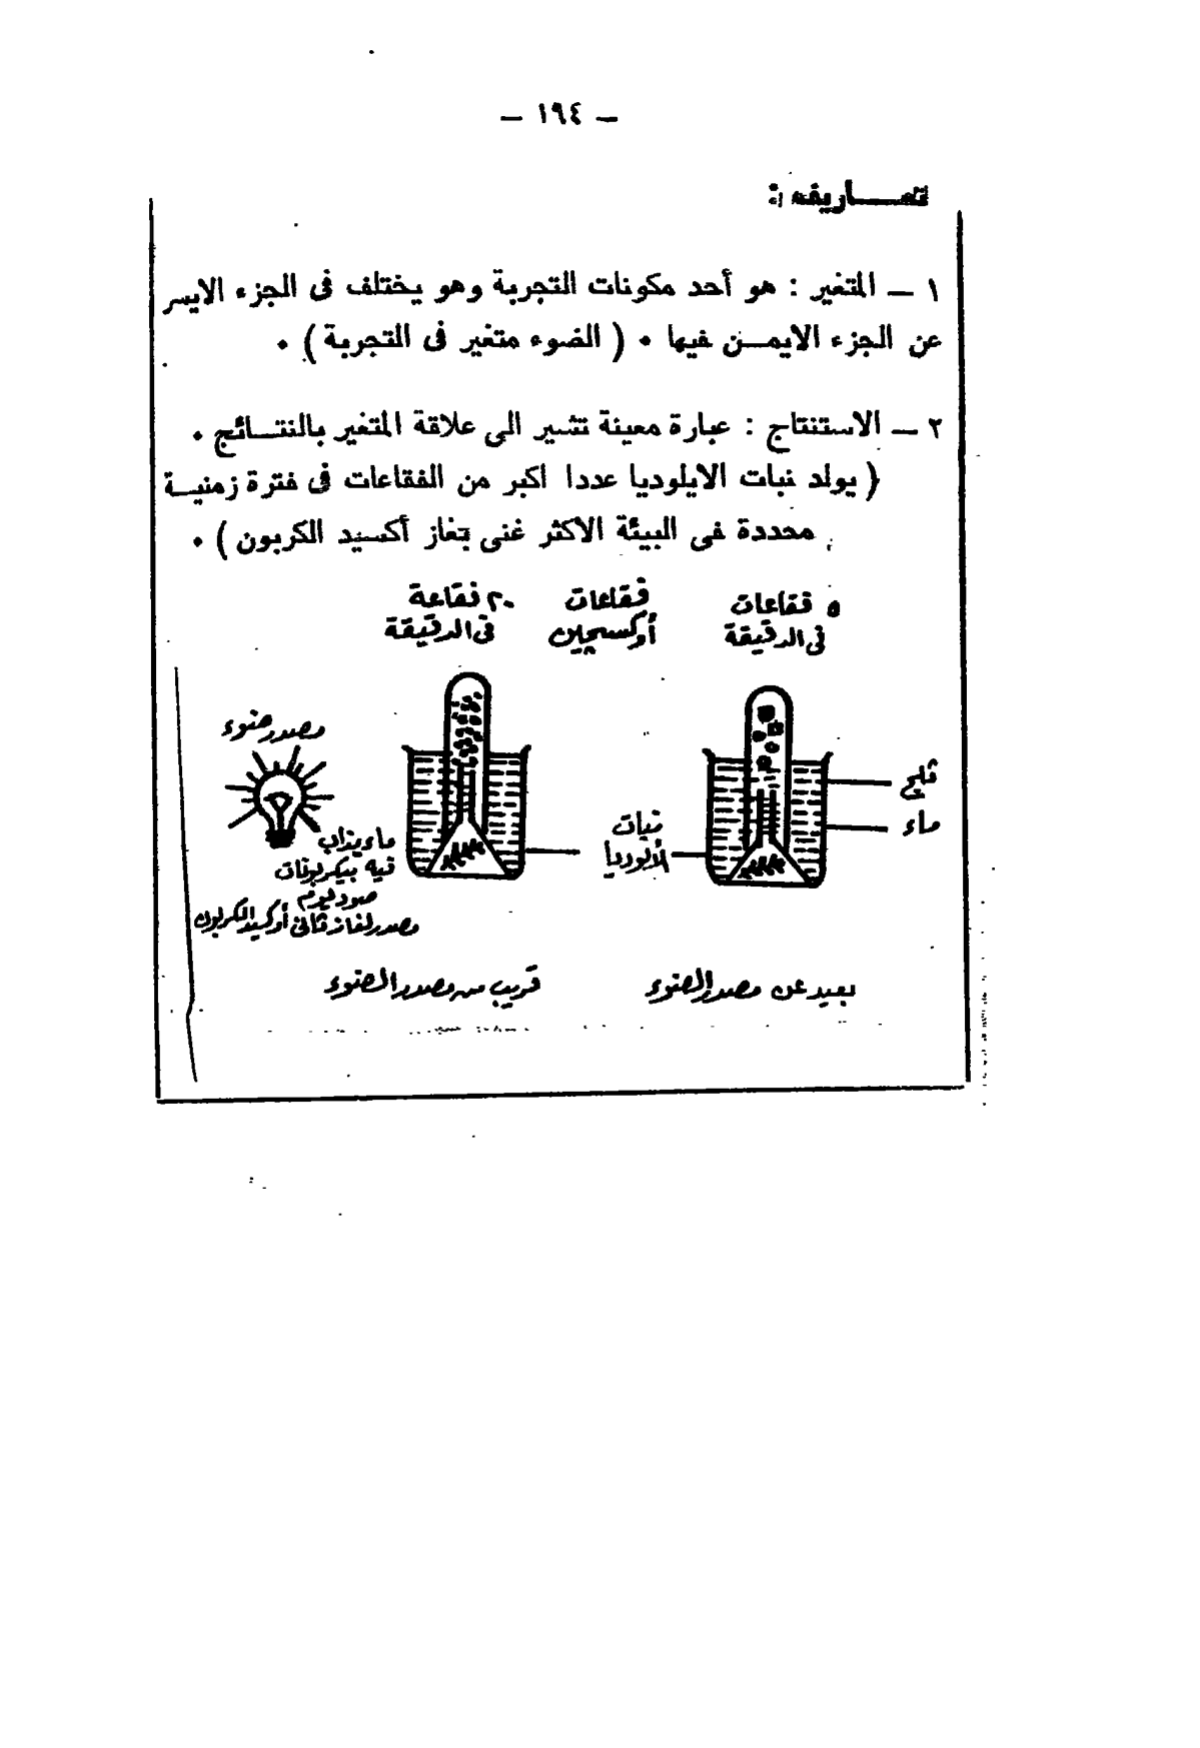 — ١٩٤ —
تعـــاريف :
١ — المتغير : هو أحد مكونات التجربة وهو يختلف فى الجزء الايسر
عن الجزء الايمــن فيها ٠ ( الضوء متغير فى التجربة ) ٠
٢ — الاستنتاج : عبارة معينة تشير الى علاقة المتغير بالنتــائج ٠
( يولد نبات الايلوديا عددا اكبر من الفقاعات فى فترة زمنيــة
محددة فى البيئة الاكثر غنى بغاز أكسيد الكربون ) ٠
٥ فقاعات
فى الدقيقة
فقاعات
أوكسجين
٢٠ فقاعة
فى الدقيقة
مصدر ضوء
ثلج
ماء
نبات
الألوديا
ماء يذاب
فيه بيكربونات
صوديوم
مصدر لغاز ثانى أوكسيد الكربون
بعيد عن مصدر الضوء
قريب من مصدر الضوء